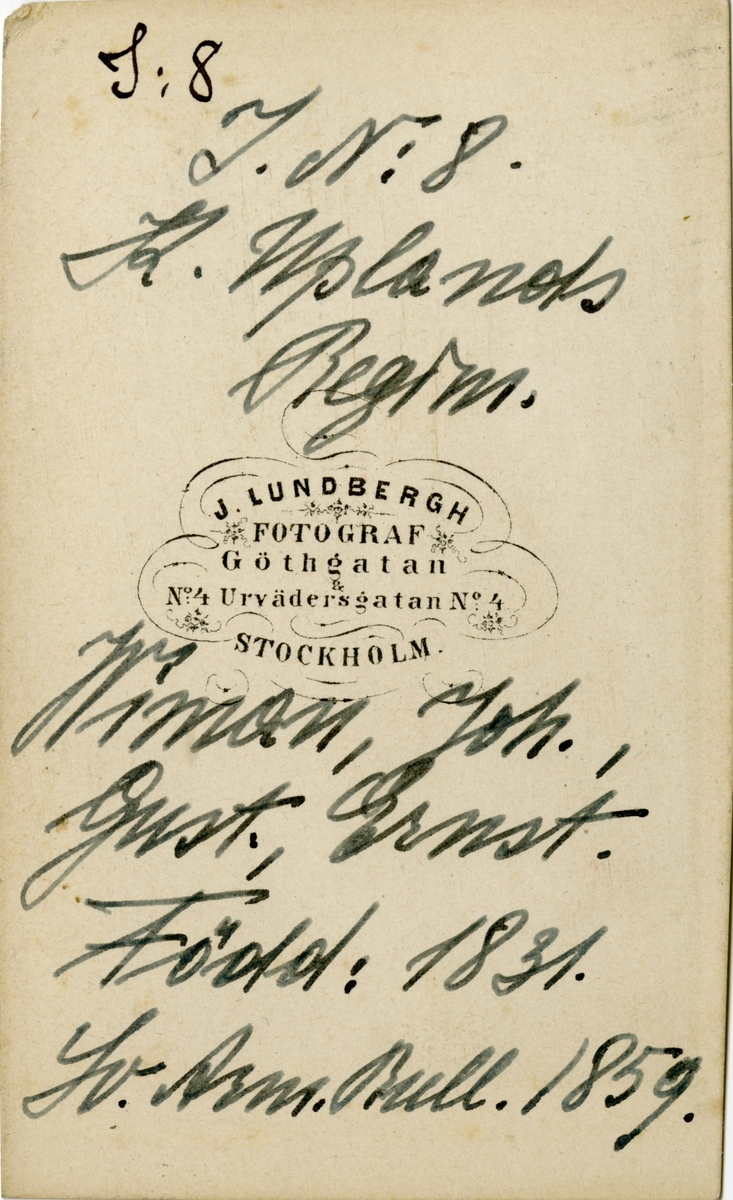 I:8
I. N:8.
K. Uplands
Regim.
J. LUNDBERGH
FOTOGRAF
Göthgatan
&
No 4 Urvädersgatan No 4
STOCKHOLM.
Wiman, Joh.,
Gust., Ernst.
Född: 1831.
Sv. Arm. Rull. 1859.